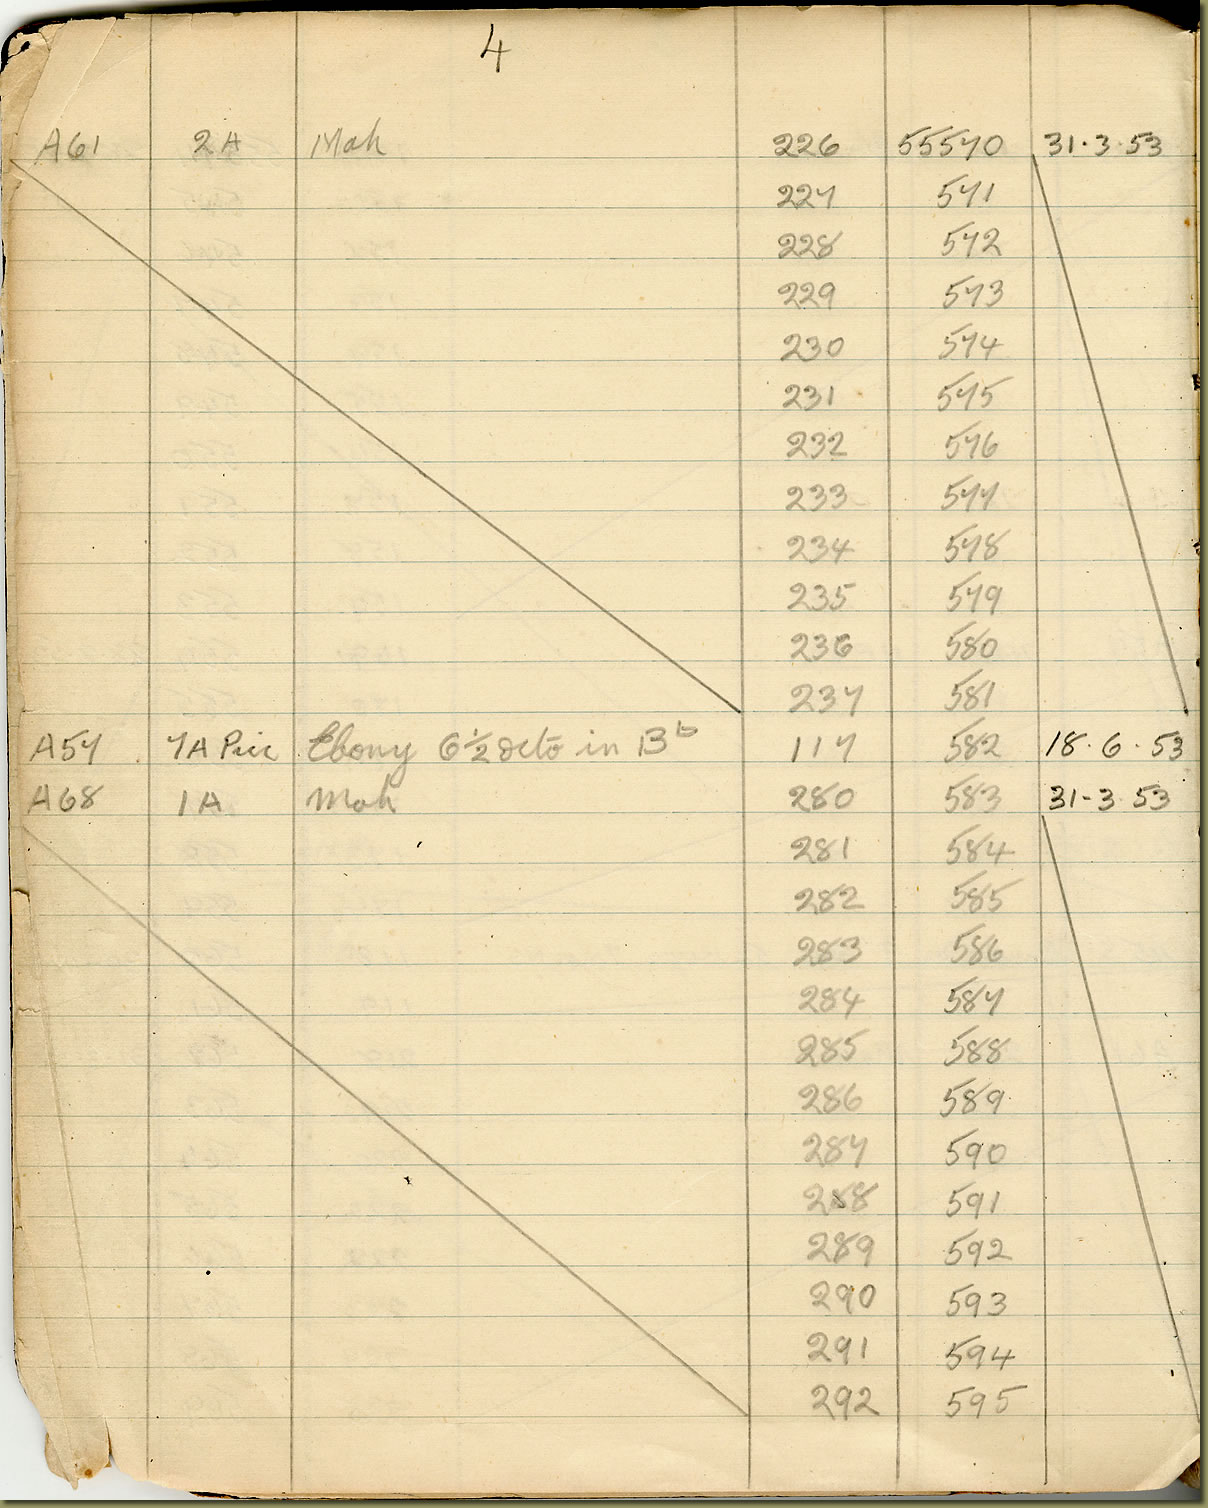 4
A61 2A Mah 226 55570 31·3·53
227 571
228 572
229 573
230 574
231 575
232 576
233 577
234 578
235 579
236 580
237 581
A57 7A Pric Ebony 6½ 8cto in 13ᵇ 117 582 18·6·53
A68 1A Mah 280 583 31-3·53
281 584
282 585
283 586
284 587
285 588
286 589
287 590
288 591
289 592
290 593
291 594
292 595